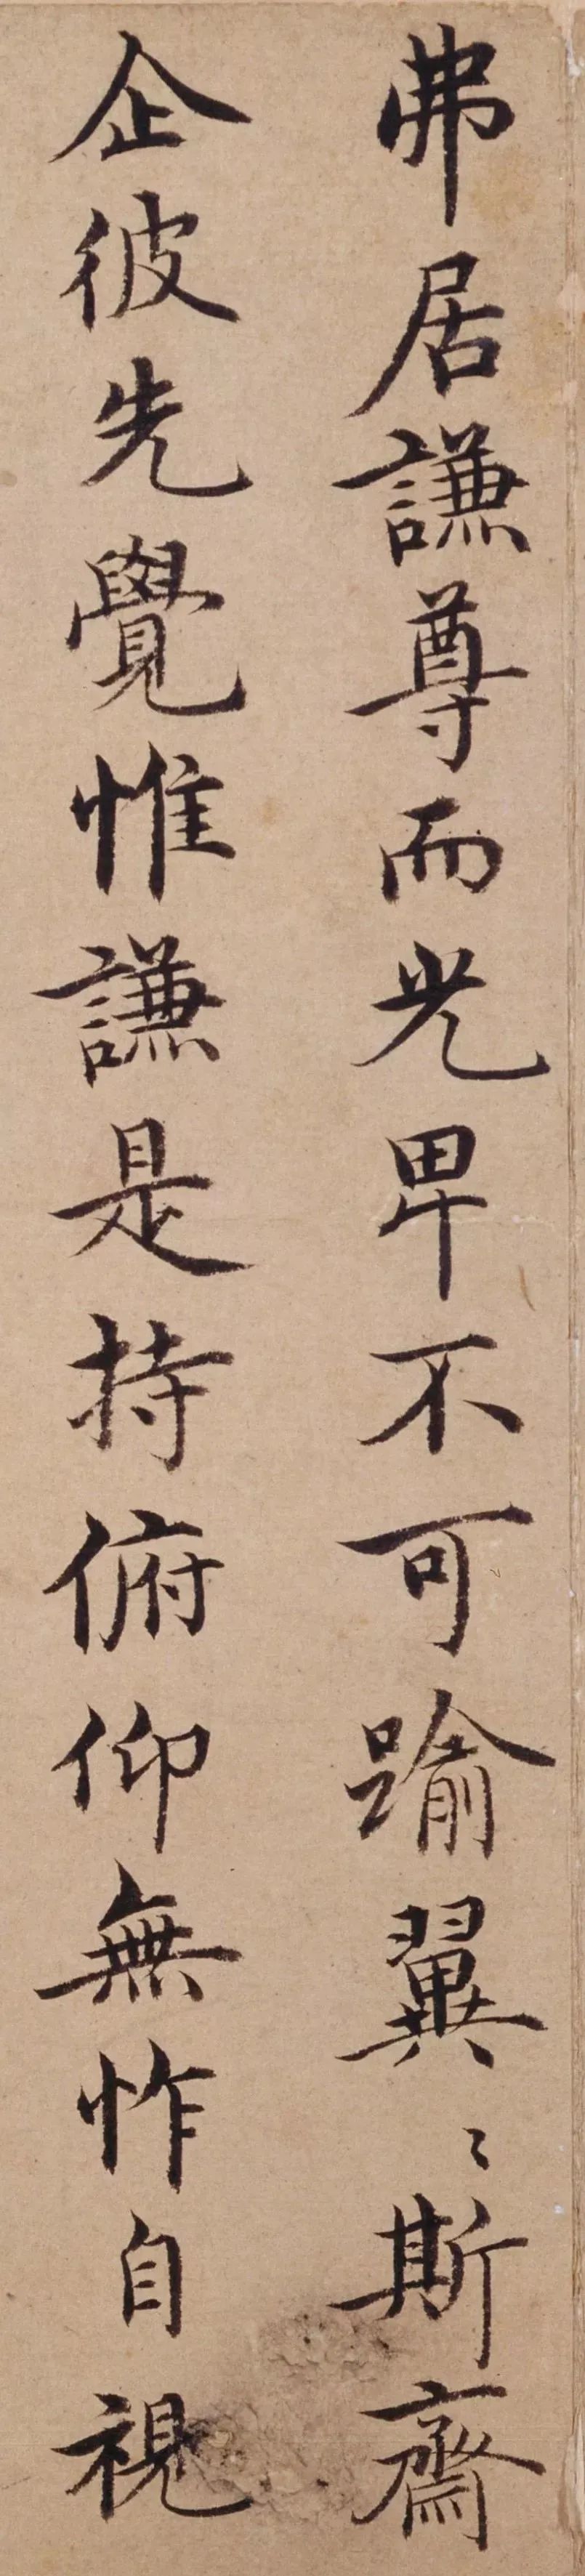 弗居謙尊而光卑不可踰翼〻斯齋
企彼先覺惟謙是持俯仰無怍自視